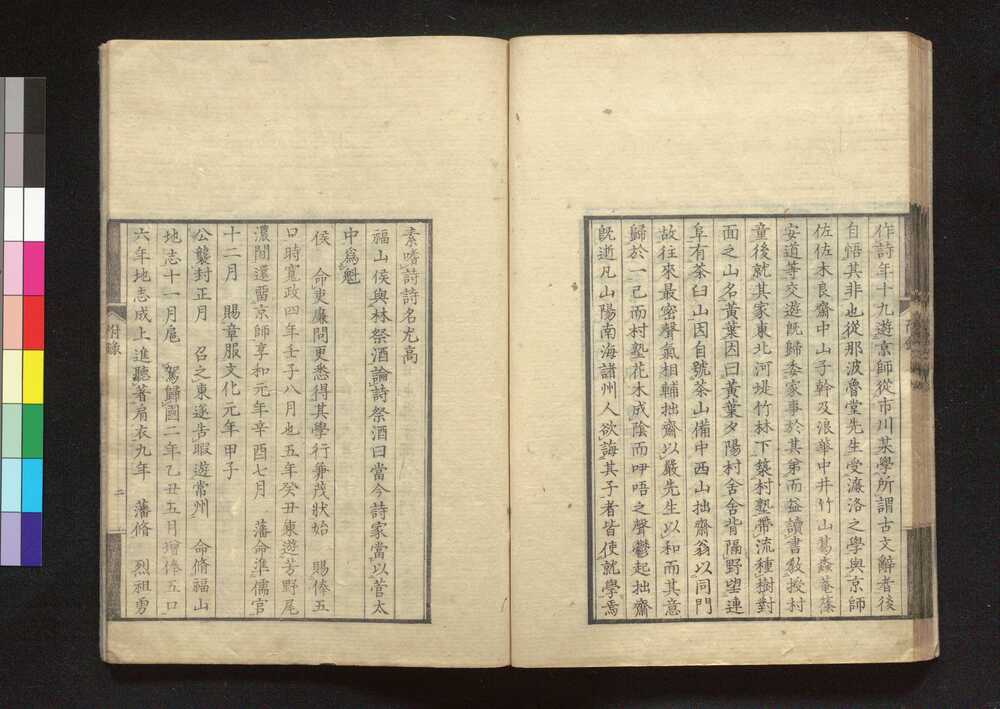 作詩年十九遊京師從市川某學所謂古文辭者後
自悟其非也從那波魯堂先生受濂洛之學與京師
佐佐木良齋中山子幹及浪華中井竹山葛森菴藤
安道等交遊既歸委家事於其弟而益讀書敎授村
童後就其家東北河堤竹林下築村塾帶流種樹對
面之山名黃葉因曰黃葉夕陽村舍舍背隔野望連
阜有茶臼山因自號茶山備中西山拙齋翁以同門
故往來最密聲氣相輔拙齋以嚴先生以和而其意
歸於一己而村塾花木成陰而咿唔之聲鬱起拙齋
旣逝凡山陽南海諸州人欲誨其子者皆使就學焉
素嗜詩詩名尤高
福山侯與林祭酒論詩祭酒曰當今詩家當以菅太
中爲魁
侯 命吏廉問更悉得其學行兼茂狀始 賜俸五
口時寬政四年壬子八月也五年癸丑東遊芳野尾
濃間還畱京師享和元年辛酉七月 藩命準儒官
十二月 賜章服文化元年甲子
公襲封正月 召之東遂告暇遊常州 命脩福山
地志十一月扈 駕歸國二年乙丑五月增俸五口
六年地志成上進聽著肩衣九年 藩脩 烈祖勇
附錄
二